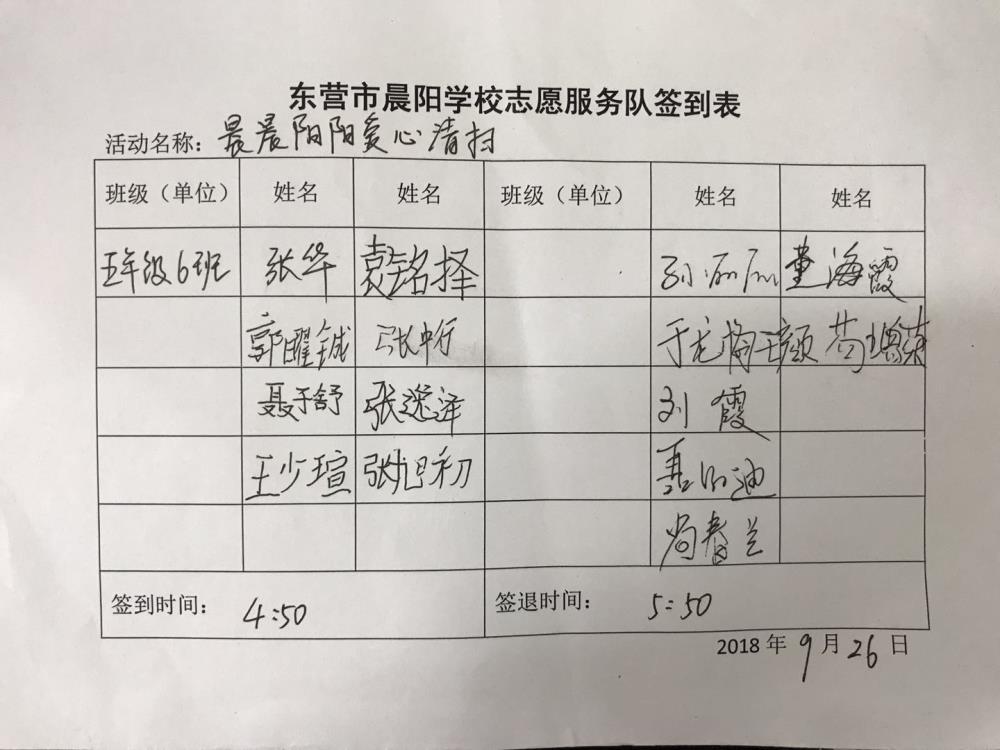 东营市晨阳学校志愿服务队签到表
活动名称：晨晨阳阳爱心清扫
班级（单位） 姓名 姓名 班级（单位） 姓名 姓名
五年级6班 张华 袁铭择 孙丽丽 董海霞
郭曜铖 张中行
聂于舒 张逸泽 刘霞
王少瑄 张旭初
尚春兰
签到时间： 4:50 签退时间： 5:50
2018年9月26日